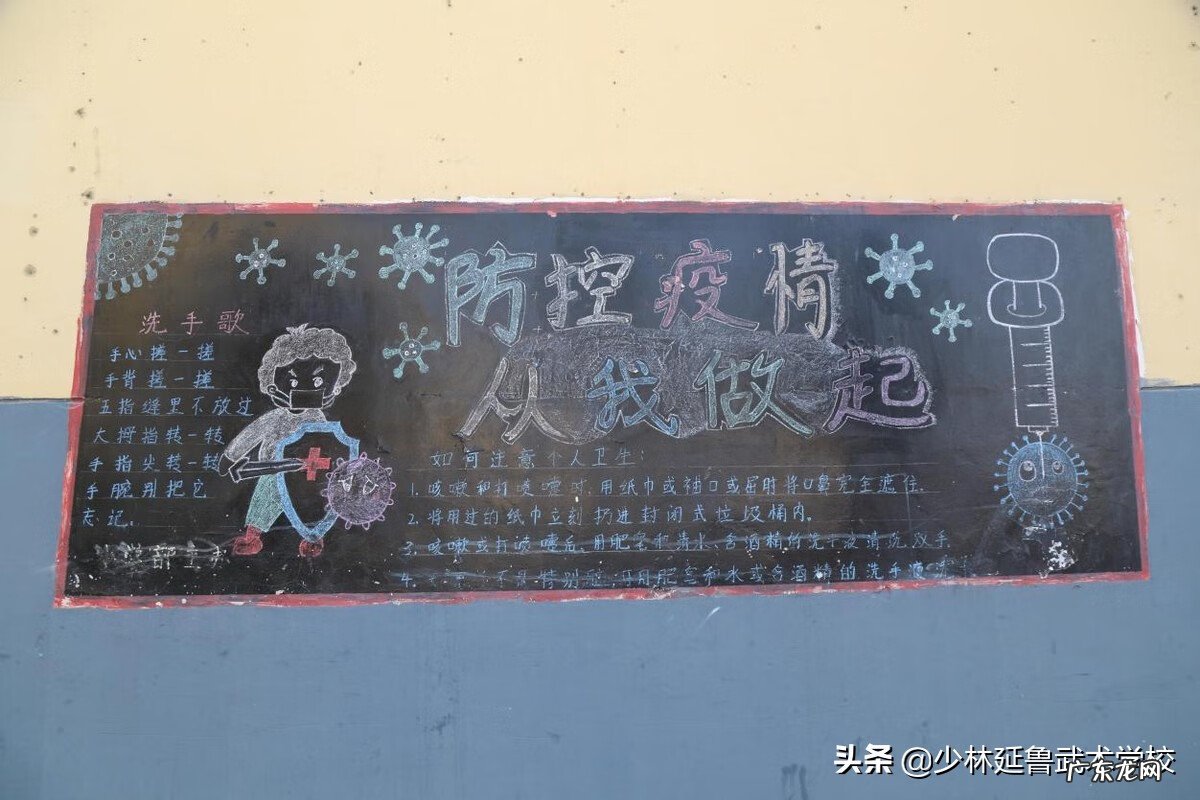 防控疫情
从我做起
洗手歌
手心搓一搓
手背搓一搓
五指缝里不放过
大拇指转一转
手指尖转一转
手腕别把它
忘记。
如何注意个人卫生:
1. 咳嗽和打喷嚏时,用纸巾或袖口或屈肘将口鼻完全遮住.
2. 将用过的纸巾立刻扔进封闭式垃圾桶内。
3. 咳嗽或打喷嚏后,用肥皂和清水、含酒精的洗手液清洗双手
4. 不是特别脏,可用肥皂和水或含酒精的洗手液
头条 @少林延鲁武术学校
广东龙网